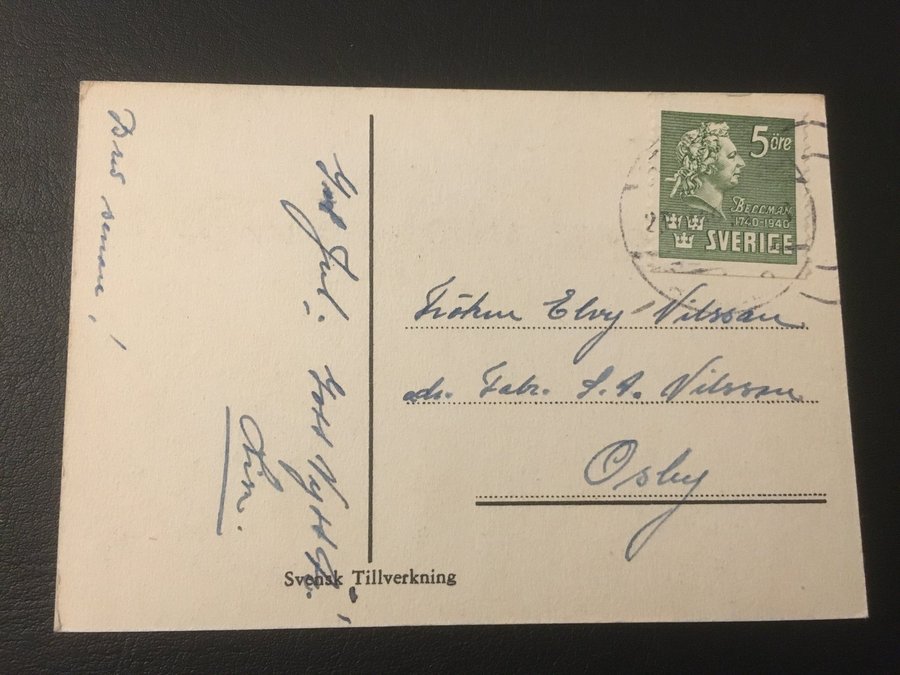 God Jul! Gott Nytt År!
Brev senare!
5 öre
BELLMAN
1740-1940
SVERIGE
Fröken Elvy Nilsson
adr. Fabr. S. A. Nilsson
Osby
Svensk Tillverkning